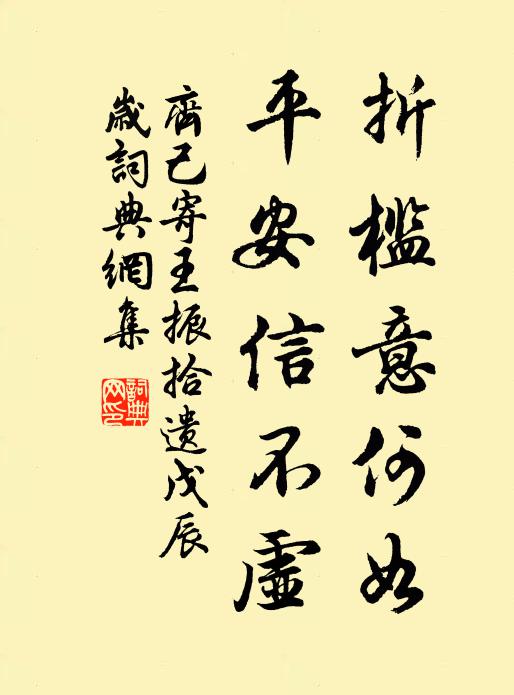 折檻意何如
平安信不虛
齊己寄王振拾遺戊辰
歲詞典網集
詞典
网印